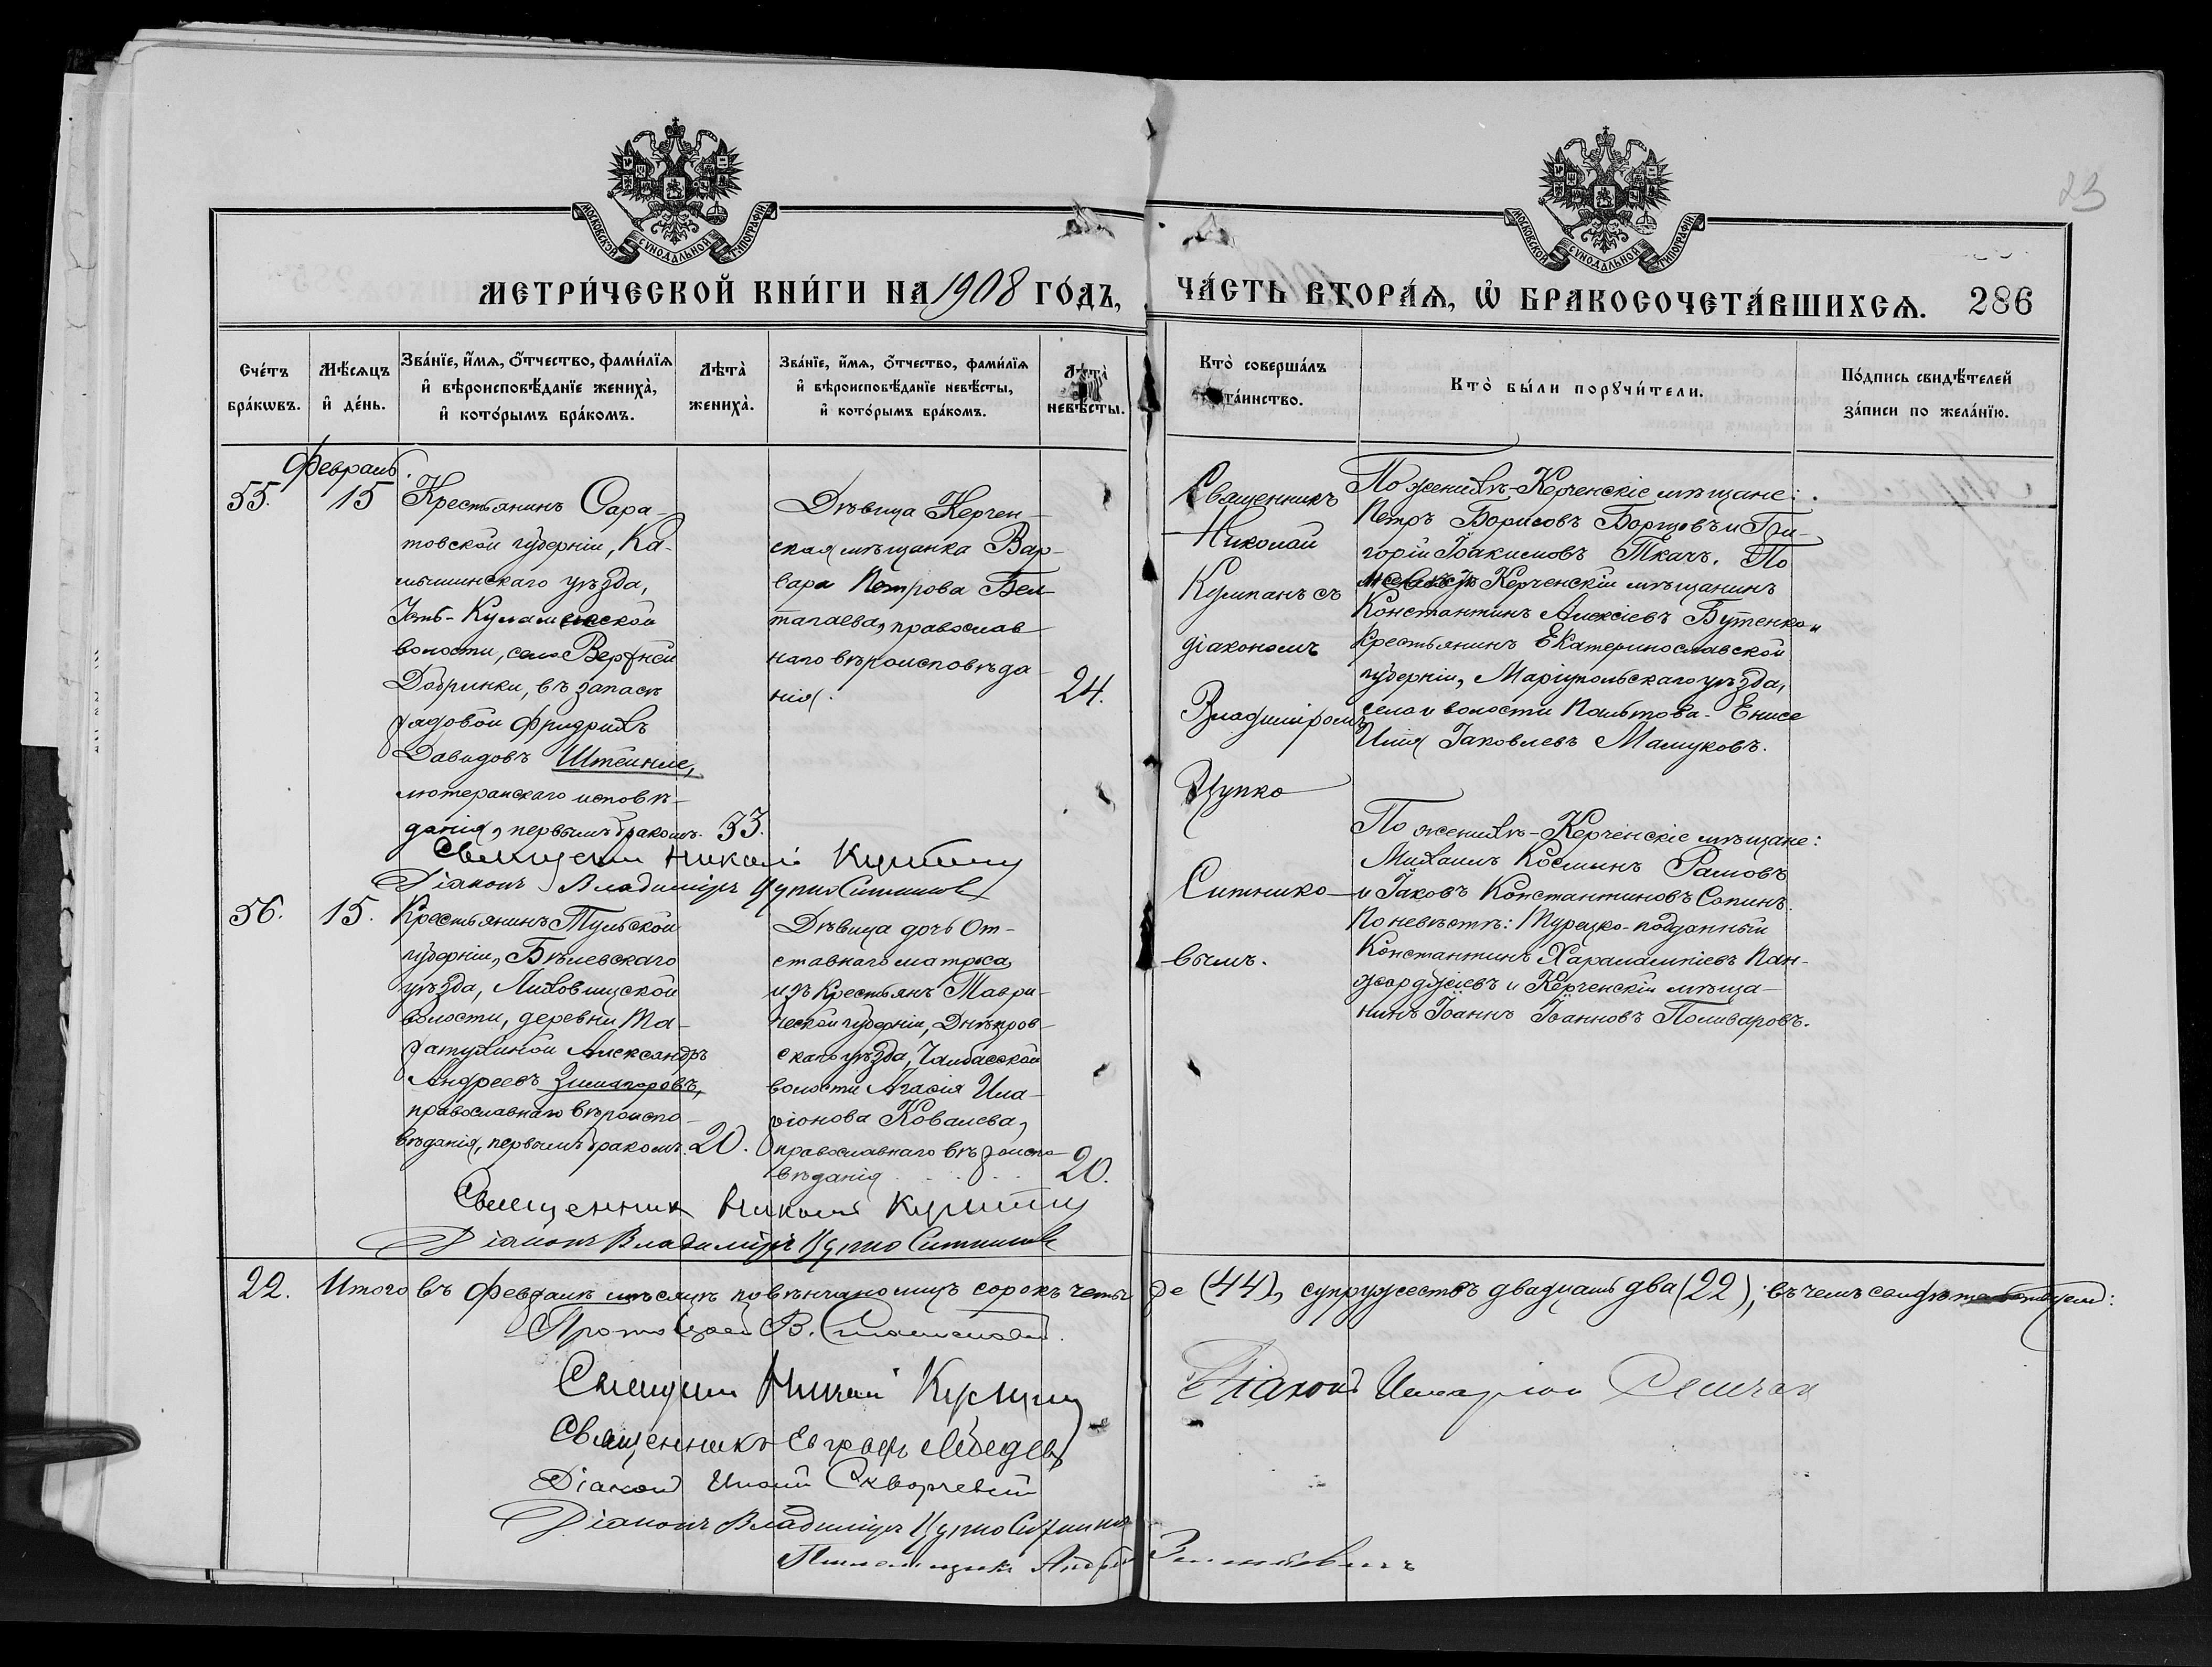 23
МОСКОВСКОЙ СѴНОДАЛЬНОЙ ТИПОГРАФІИ
МОСКОВСКОЙ СѴНОДАЛЬНОЙ ТИПОГРАФІИ
МЕТРИ́ЧЕСКОЙ КНИ́ГИ НА 1908 ГО́ДЪ,
ЧА́СТЬ ВТОРА́Ѧ, Ѽ БРАКОСОЧЕТА́ВШИХСѦ. 286
Сче́тъ
бра́кѡвъ.
Мѣ́сяцъ
и҆ де́нь.
Зва́нїе, и҆́мѧ, ѻ҆́тчество, фами́лїѧ
и҆ вѣроисповѣ́данїе жениха̀,
и҆ кото́рымъ бра́комъ.
Лѣта̀
жениха̀.
Зва́нїе, и҆́мѧ, ѻ҆́тчество, фами́лїѧ
и҆ вѣроисповѣ́данїе невѣ́сты,
и҆ кото́рымъ бра́комъ.
Лѣта̀
невѣ́сты.
Кто̀ соверша́лъ
та́инство.
Кто̀ бы́ли порꙋчи́тели.
По́дпись свидѣ́телей
за́писи по жела́нїю.
Февраль.
55. 15
Крестьянинъ Сара-
товской губерніи, Ка-
мышинскаго уѣзда,
Усть-Кулалинской
волости, села Верхней
Добринки, въ запасѣ
рядовой Фридрихъ
Давидовъ Штейнле,
лютеранскаго исповѣ-
данія, первымъ бракомъ. 33.
Дѣвица Керчен-
ская мѣщанка Вар-
вара Петрова Бел-
тагаева, православ
наго вѣроисповѣда-
нія. 24.
Священникъ
Николай
Кулпанъ съ
діакономъ
Владиміромъ
Цупко
Ситнико-
вымъ.
По женихѣ-Керченскіе мѣщане:
Петръ Борисовъ Борщовъ и Гри-
горій Іоакимовъ Ткачъ. По
Керченскій мѣщанинъ
Константинъ Алексіевъ Бутенко и
крестьянинъ Екатеринославской
губерніи, Маріупольскаго уѣзда,
села и волости Енисе
Илія Іаковлевъ Мамуковъ.
Николай
Діаконъ Владиміръ Цупко Ситников
56. 15.
Крестьянинъ Тульской
губерніи, Бѣлевскаго
уѣзда,
волости, деревни Та-
ратухиной Александръ
Андреевъ Зиногоровъ,
православнаго вѣроиспо-
вѣданія, первымъ бракомъ. 20.
Дѣвица дочь От-
ставнаго матроса
изъ крестьянъ Таври-
ческой губерніи, Днѣпров-
скаго уѣзда, Чалбасской
волости Агафія Ила-
ріонова Ковалева,
православнаго вѣроиспо-
вѣданія 20.
По женихѣ-Керченскіе мѣщане:
Михаилъ Космынъ Рамовъ
и Іаковъ Константиновъ Сапинъ.
По невѣстѣ: Турецко-подданный
Константинъ Харалампіевъ Пан-
и Керченскій мѣща-
нинъ Іоаннъ Іоанновъ Поливаровъ.
Священник Николай
Діаконъ Владиміръ Цупко Ситников
22. Итого въ февралѣ мѣсяцѣ повѣнчано лицъ сорокъ четы-ре (44), супружествъ двадцать два (22); въ чемъ
Протоіерей В.
Николай
Діаконъ Иларіон
Священникъ Евграфъ Лебедевъ
Діаконъ
Діаконъ Владиміръ Цупко Ситников
Псаломщикъ